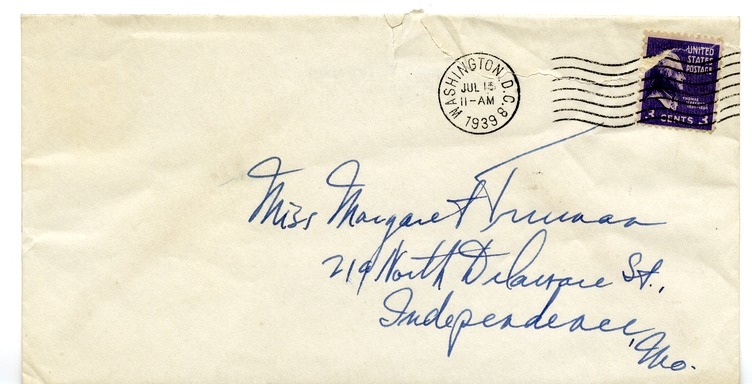 WASHINGTON, D.C. 8
JUL 15
11-AM
1939
UNITED
STATES
POSTAGE
THOMAS
JEFFERSON
3 CENTS 3
Miss Margaret Truman
219 North Delaware St.,
Independence,
Mo.